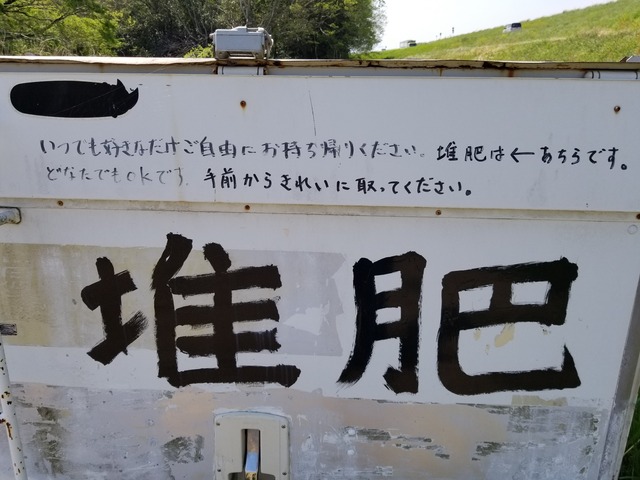 いつでも好きなだけご自由にお持ち帰りください。堆肥は←あちらです。
どなたでもOKです。手前からきれいに取ってください。
堆肥